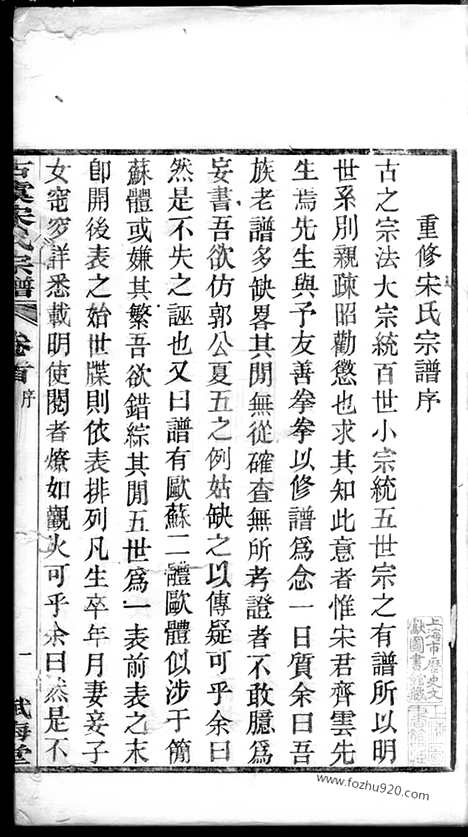 重修宋氏宗譜序
古之宗法大宗統百世小宗統五世宗之有譜所以明
世系別親疎昭勸懲也求其知此意者惟宋君齊雲先
生焉先生與予友善拳拳以修譜爲念一日質余曰吾
族老譜多缺畧其閒無從確查無所考證者不敢臆爲
妄書吾欲仿郭公夏五之例姑缺之以傳疑可乎余曰
然是不失之誣也又曰譜有歐蘇二體歐體似涉于簡
蘇體或嫌其繁吾欲錯綜其閒五世爲一表前表之末
卽開後表之始世牒則依表排列凡生卒年月妻妾子
女窀穸詳悉載明使閱者燎如觀火可乎余曰然是不
古虞宋氏宗譜
卷首
序
一
上海市歷史文
獻圖書館藏
www.fozhu920.com